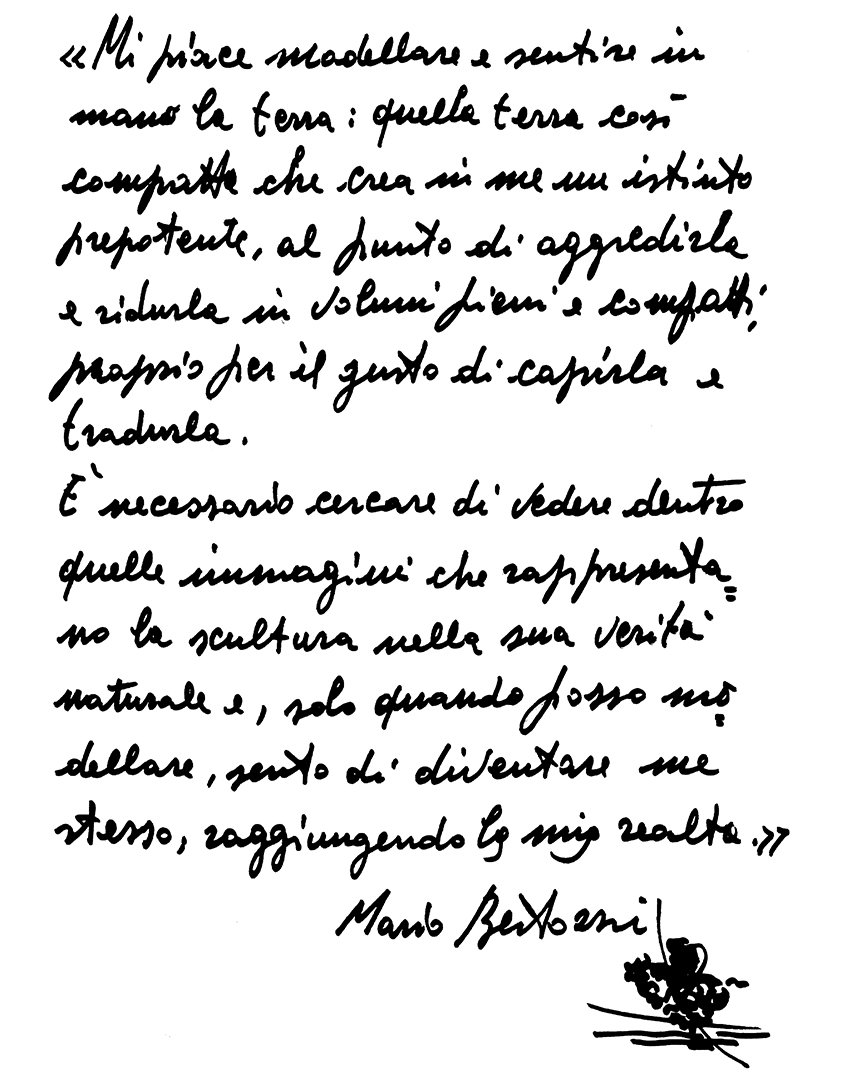 «Mi piace modellare e sentire in
mano la terra: quella terra così
compatta che crea in me un istinto
prepotente, al punto di aggredirla
e ridurla in volumi pieni e compatti,
proprio per il gusto di capirla e
tradurla.
E` necessario cercare di vedere dentro
quelle immagini che rappresenta=
no la scultura nella sua verità
naturale e, solo quando posso mo=
dellare, sento di diventare me
stesso, raggiungendo la mia realtà.»
Mario Bertozzi